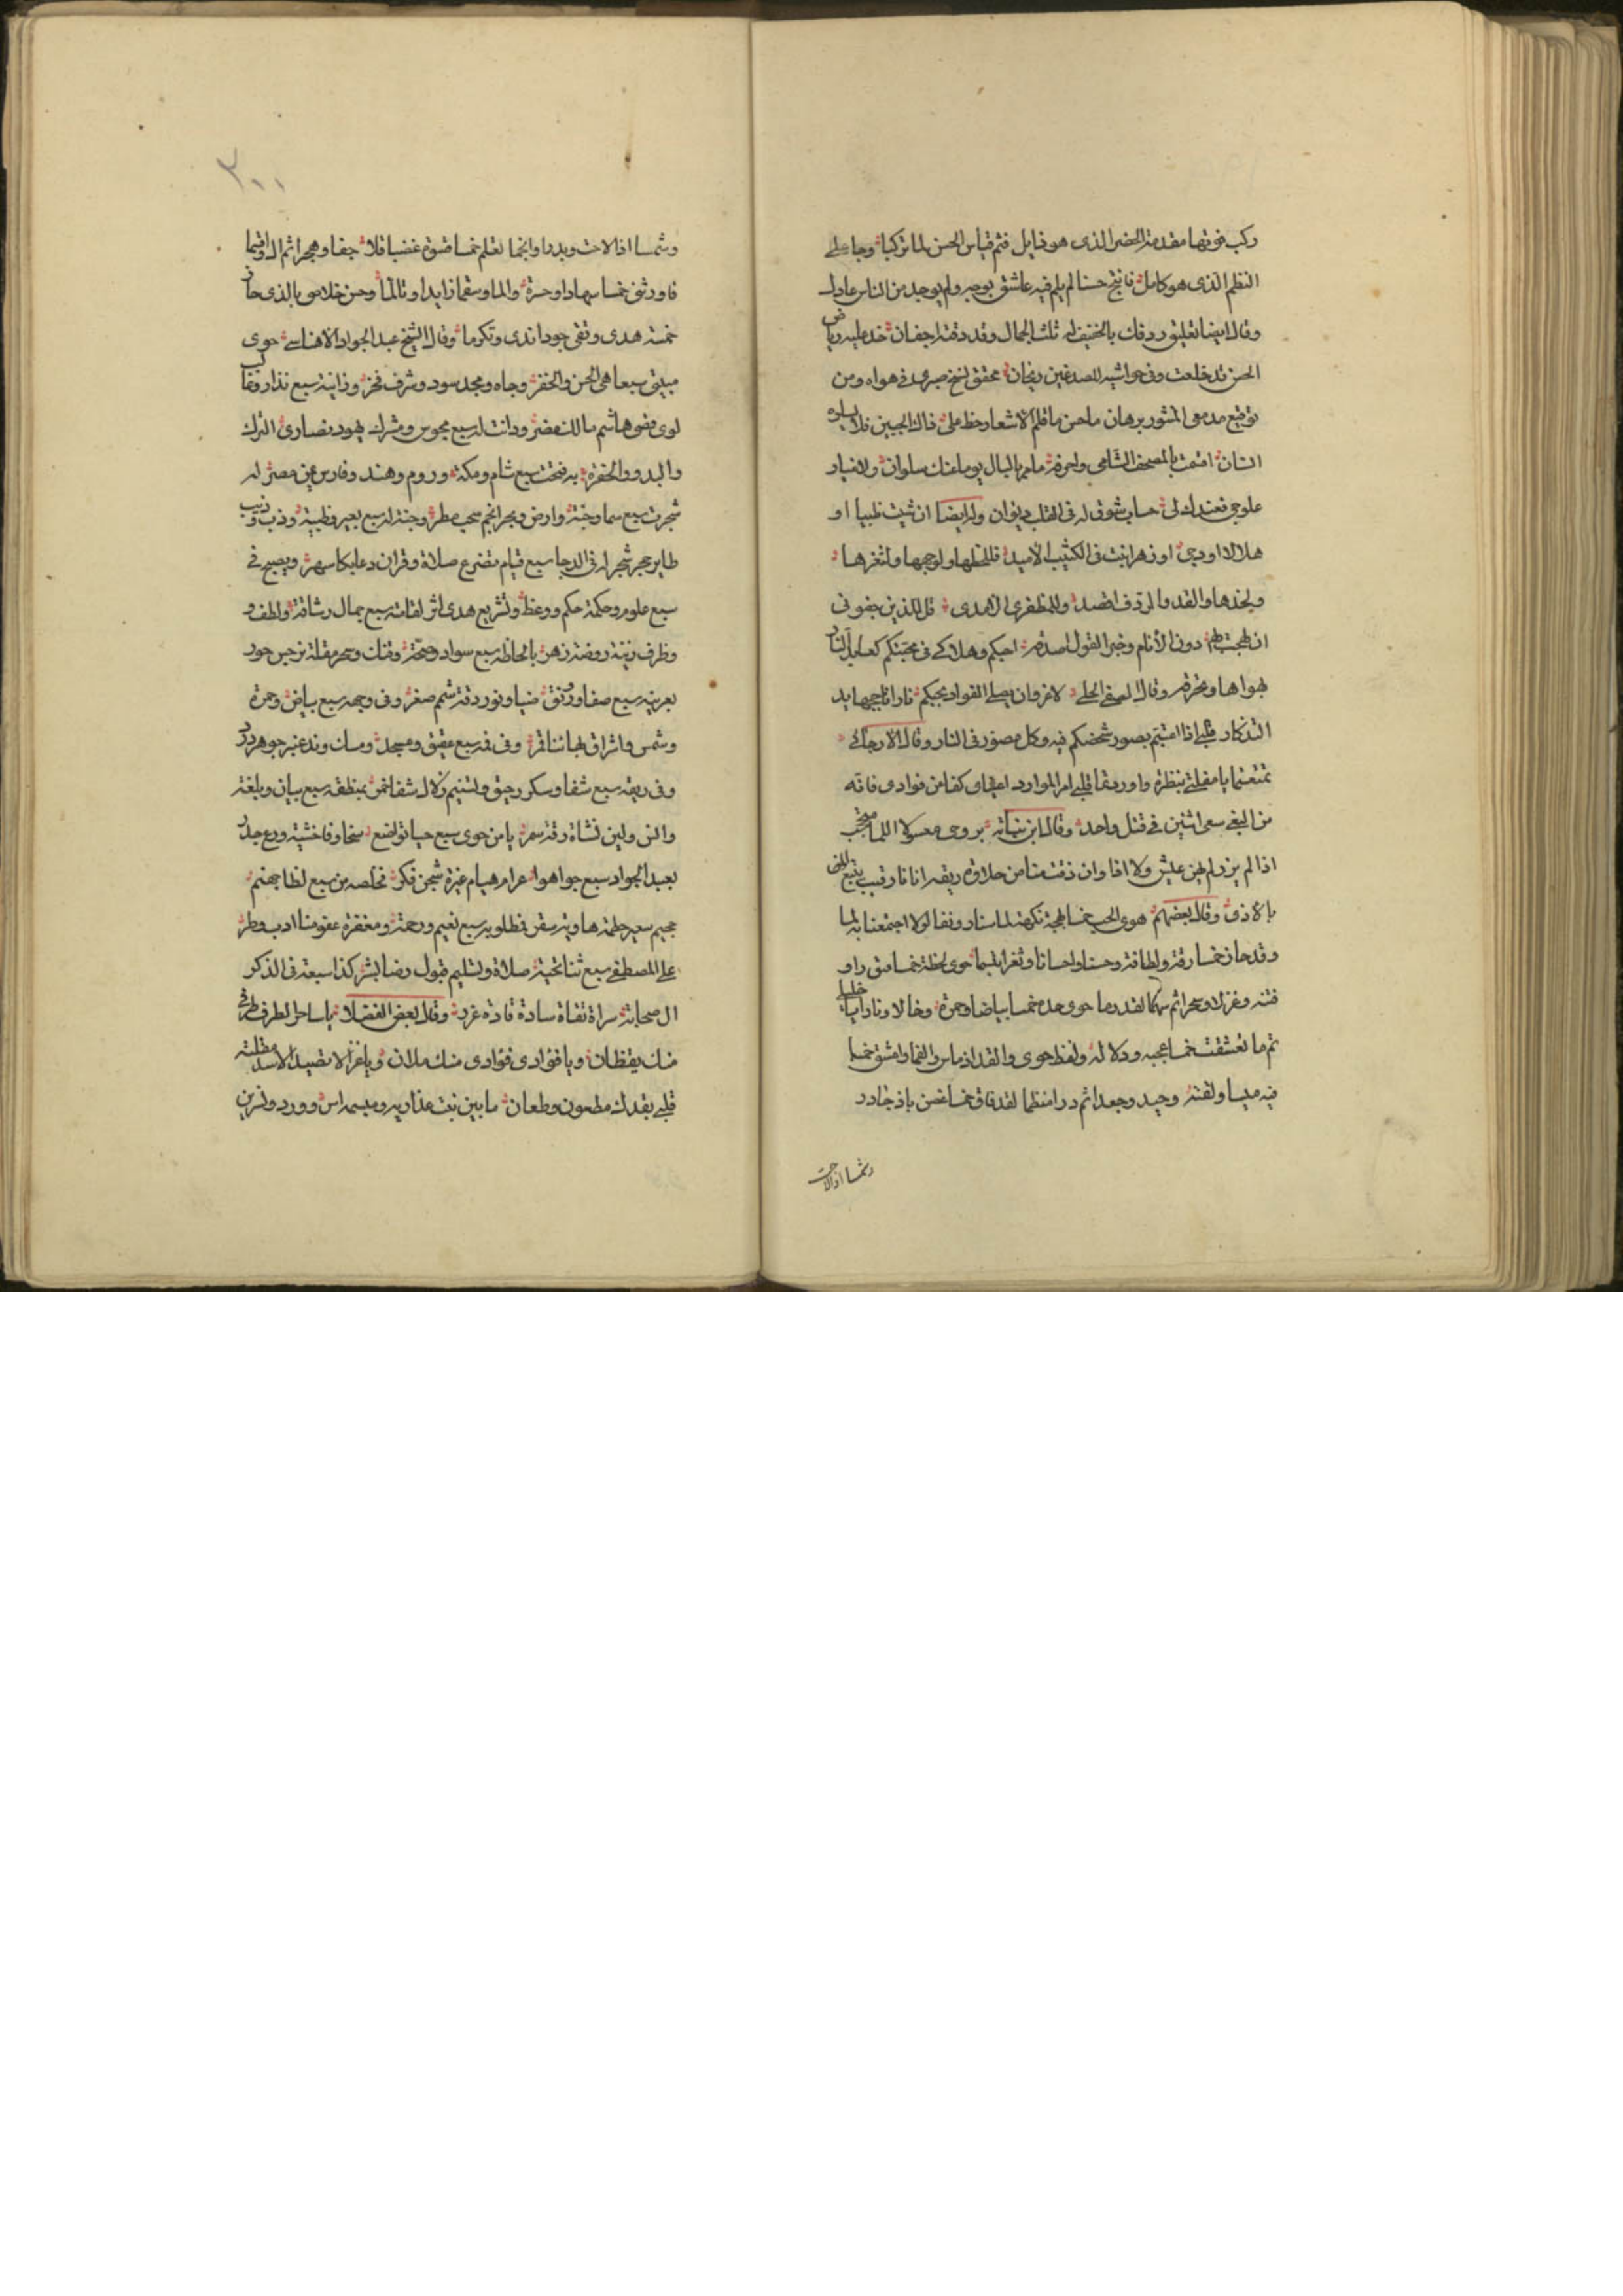 ركب فوقها مقدمة الخضر الذى هو نايل فتم قياس الحسن لما تركبا وجا على
النظم الذى هو كامل فانتج حسنا لم يلم فيه عاشق بوصر ولم يوجد من الناس عادل
وقال ايضا تعليق ردفك بالخفيف له ثلث الجمال وقد دقته اجفان خد عليه رياض
الحسن قد خلعت وفى حواشيه للصدغين ريحان محقق نسخ صبرى فى هواه ومن
توقيع مدمعى المنثور برهان ما حسن ما قلم الاشعار خط على ذاك الجبين فلا يسلوه
انسان اقسمت بالمصحف الشامى واحرفه ما مر بالبال يوما عنك سلوان ولا غبار
على حبى فعندك لى حساب شوق له فى القلب ديوان وله ايضا ان شيت ظبيا او
هلالا او دجى او زهر انبت فى الكثيب الاميد فللحظها ولوجهها ولثغرها
ولخدها والقد والردف اقصد وللمظفرى الامدى قل للذين جفونى
اذ لهجت بهم دون الأنام وخير القول اصدقه احبكم وهلاكى فى محبتكم كعابد النار
يهواها وتحرقه وقال الصفى الحلى لا غرو ان يصلى الفواد بحبكم نارا تاججها يد
التذكار قلبى اذا اشبتم بصور شخصكم فيه وكل مصور فى النار وقال الارجانى
تمتعتما يا مقلتى بنظرة واوردتما قلبى امر الموارد اعينى كفا من فوادى فانه
من البغى سعى اثنين فى قتل واحد وقال ابن نباته بروحى معسول اللما متجنب
اذا لم يزر لم يهن عيش ولا اذا وان ذقت منا من حلاوة ريقه اتانا رقيب يتبع المن
بالاذى وقال بعضهم هوى الحب خمسا لهجة نكهة لما سنا رونقا لولا اجتمعنا به لما
وقد حاز خمسا رقة ولطافة وحسنا واحسانا وثغرا بلسما حوى لحظه خمسا مق راو
فتنه وغزلا وسحرا ثم سهما لقد رما حوى خده خمسا بياضا وحمرة وخالا ونارا يا خليلى
ثم ما تعشقت خمسا عجبه ودلاله ولفظ حوى والقد اذ ماس والفما واعشق خمسا
فيه ميسا ولفتة وجيد وجعدا ثم درا منظما لقد فاق خمسا غصن بان ذجادر
وشمسا اذا لاحت
وشمسا اذا لاحت وبدرا وانجما تعلم خمسا قسوة غضبا قلا جفا وهجرا ثم الـ
فاورثنى خمسا سهادا وحسرة والما وسقما زايدا وتالما وحسن خلاصى بالذى حاز
خمسة هدى وتقى جودا ندى وتكرما وقال الشيخ عبد الجواد الاخناسى حوى
مبيتى سبعا هى الحسن والخفر وجاه ومجد سود وشرف فخر وزانية سبع نذار وغالب
لوى قصى هاشم مالك مضر ودانت له سبع مجوس ومشرك يهود نصارى الترك
والبدو والحضر به فتحت سبع شام ومكة وروم وهند وفارس مين مصر له
شجرت سبع سما وجنة وارض وبحر انجم سحب مطر وجنة له سبع بعير وظبية وذيب و
طاير حجر شجر له فى الدجا سبع قيام تضرع صلاة وقران دعا بكا سهر ويصبح فى
سبع علوم وحكمة حكم ووعظ وتشريع هدى اثر لقامته سبع جمال رشاقة ولطف و
وظرف زينة روضة زهر بالحاظه سبع سواد وصحة وفتك وسحر مقلة نرجس حور
بعرنينه سبع صفا ورونق ضيا ونور دقة شمم صغر وفى وجهه سبع بياض وحمرة
وشمس واشراق بها سنا قمر وفى فمه سبع عقيق ومسجد ومسك وند عنبر جوهر درر
وفى ريقه سبع شفا وسكر رحيق وتسنيم زلال شفا خمر بمنطقه سبع بيان وبلغة
والسن ولين نشاة رقة سمر يا من حوى سبع حيا تواضع سخا وفا خشية ورع حذر
بعبد الجواد سبع جوا هوا غرام هيام غيرة شجن فكر فخلصه من سبع لظا جهنم
جحيم سعير حطمة هاوية سقر فى ظلوبه سبع نعيم ورحمة ومغفرة عفو منا ادب وطر
على المصطفى سبع ثنا تحية صلاة وتسليم قبول رضا بشر كذا سبعة فى الذكر
ال صحابة سراة تقاة سادة قادة غرر وقال بعض الفضلا يا ساحر الطرف طرفى
منك يقظان ويا فؤادى فؤادى منك ملان ويا غزالا تصيد الاسد مقلته
قلبى بقدك مطعون وطعان ما بين نبت عذاريه ومبسمه اس وورد ونسرين